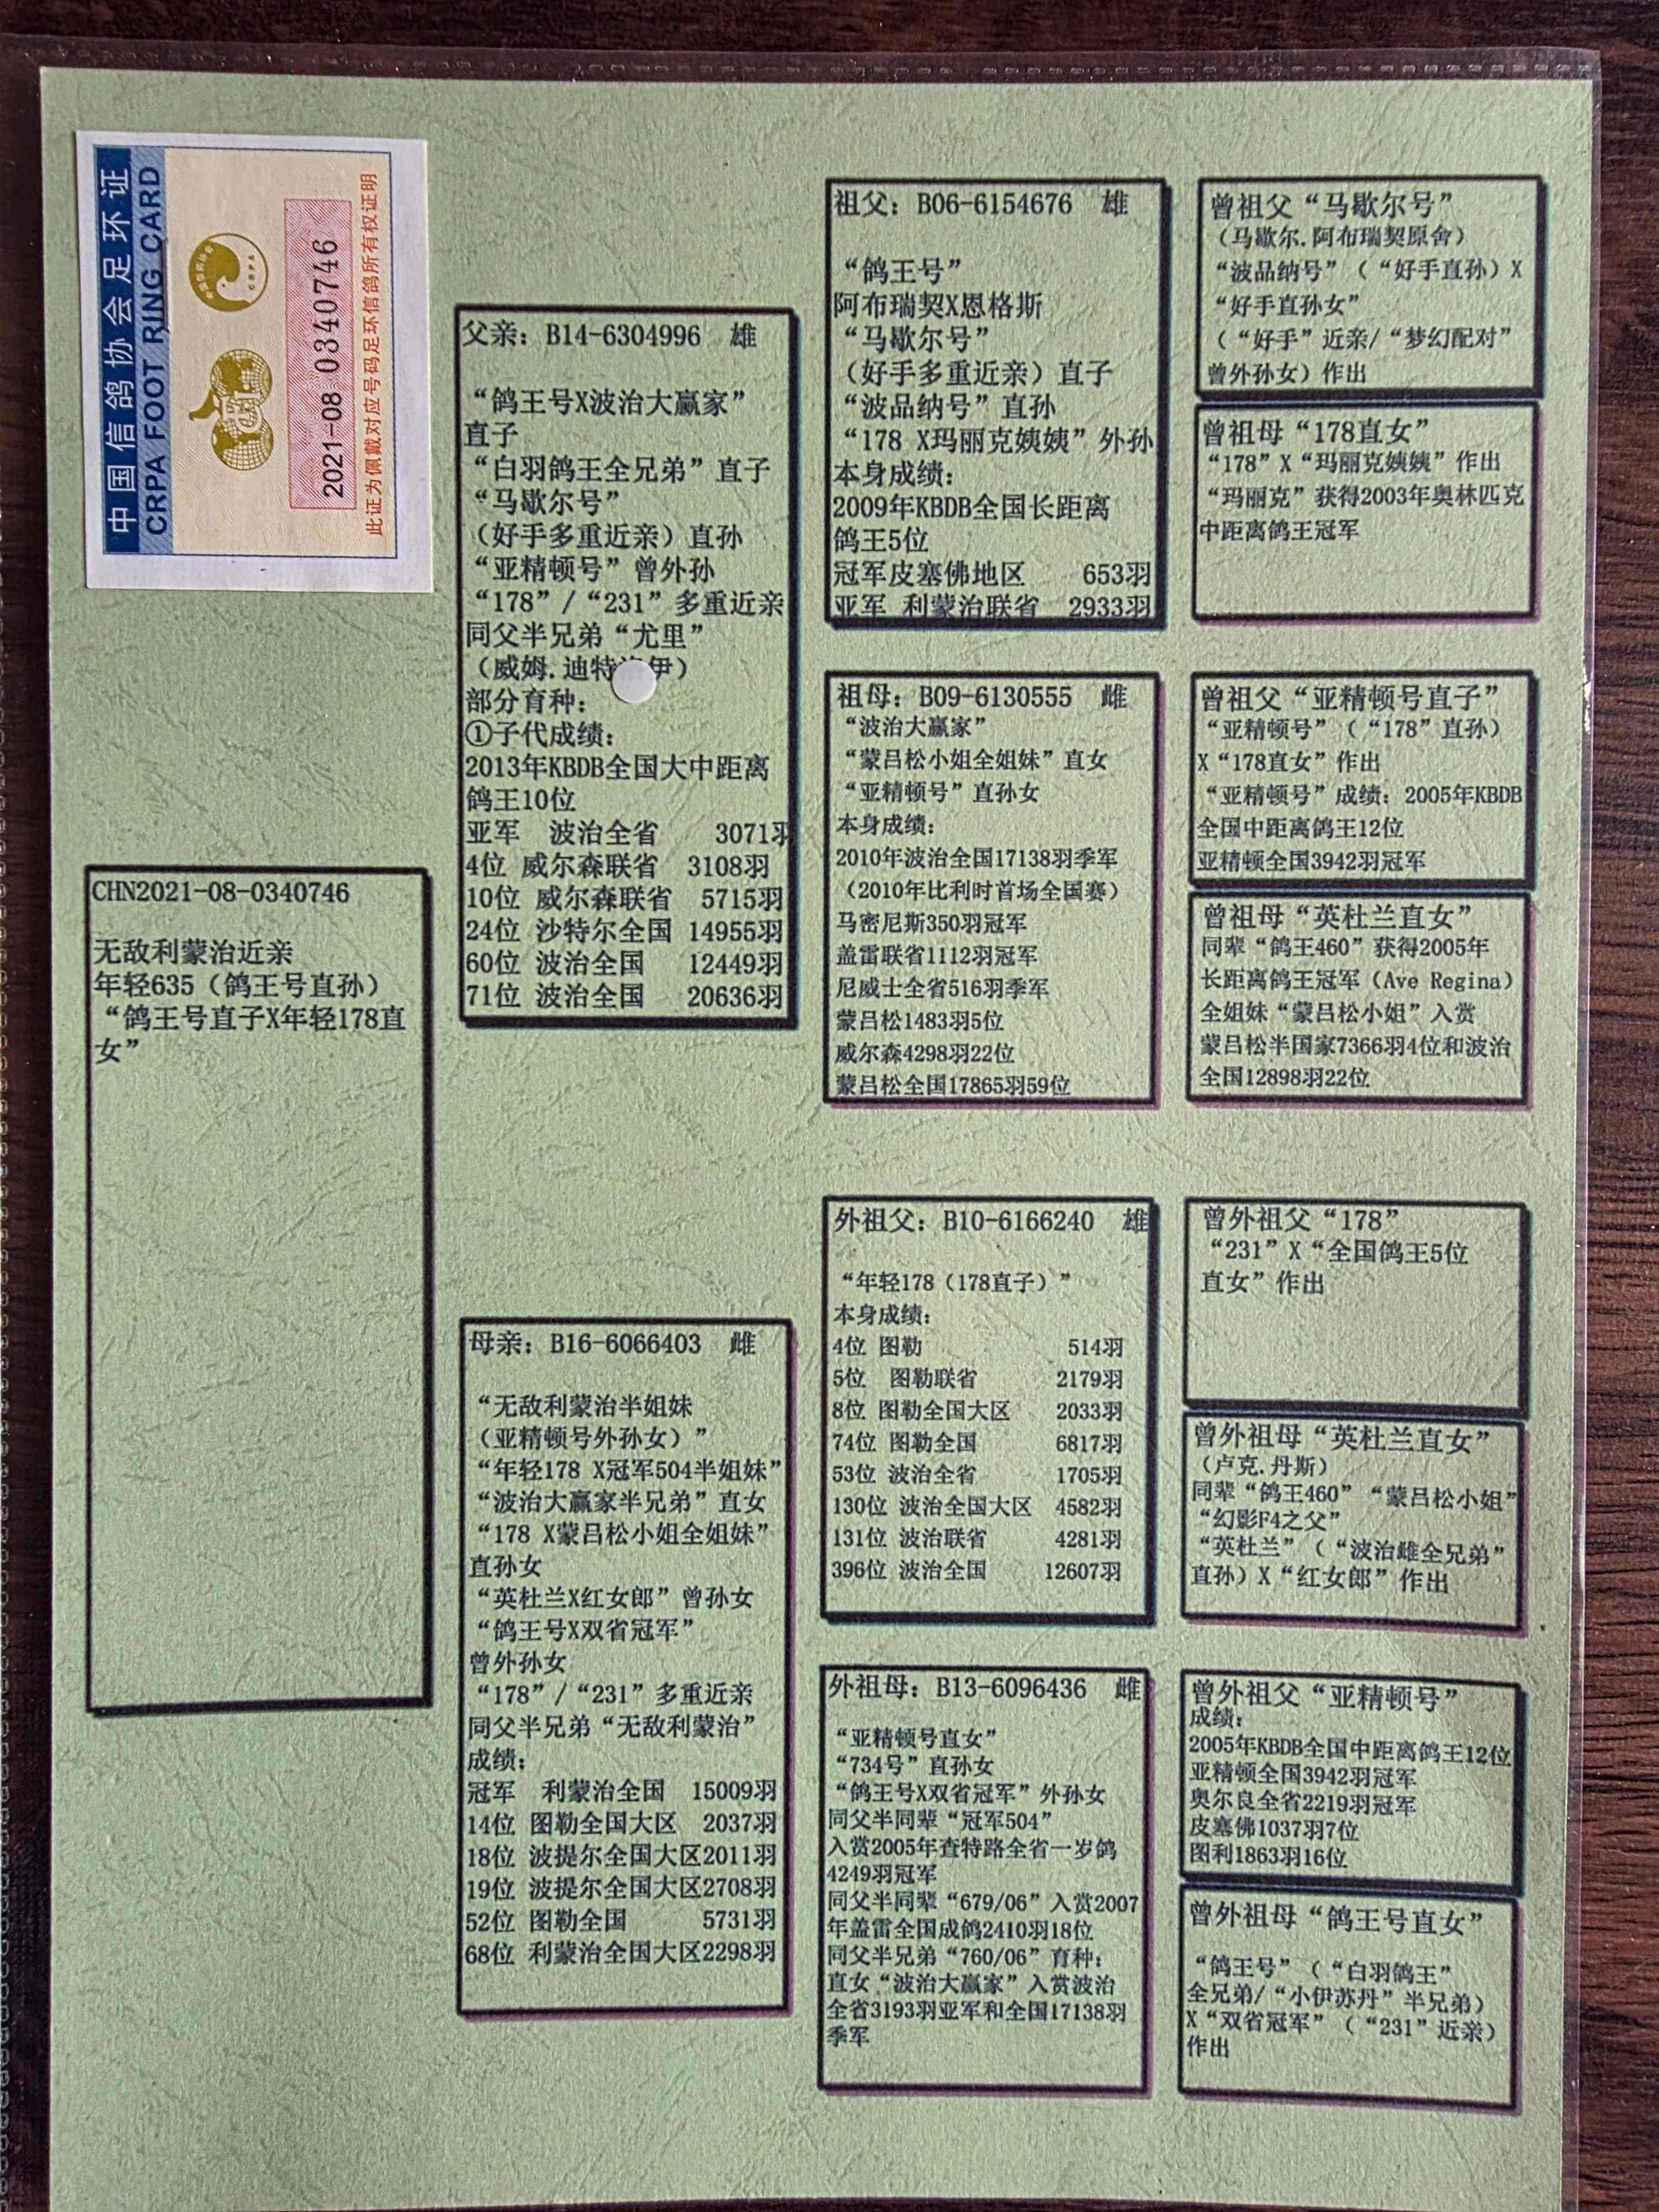 中国信鸽协会足环证
CRPA FOOT RING CARD
CRPA
2021-08 0340746
此证为佩戴对应号码足环信鸽所有权证明
CHN2021-08-0340746
无敌利蒙治近亲
年轻635（鸽王号直孙）
“鸽王号直子X年轻178直
女”
父亲：B14-6304996 雄
“鸽王号X波治大赢家”
直子
“白羽鸽王全兄弟”直子
“马歇尔号”
（好手多重近亲）直孙
“亚精顿号”曾外孙
“178”/“231”多重近亲
同父半兄弟“尤里”
（威姆.迪特 伊）
部分育种：
①子代成绩：
2013年KBDB全国大中距离
鸽王10位
亚军 波治全省 3071羽
4位 威尔森联省 3108羽
10位 威尔森联省 5715羽
24位 沙特尔全国 14955羽
60位 波治全国 12449羽
71位 波治全国 20636羽
母亲：B16-6066403 雌
“无敌利蒙治半姐妹
（亚精顿号外孙女）”
“年轻178 X冠军504半姐妹”
“波治大赢家半兄弟”直女
“178 X蒙吕松小姐全姐妹”
直孙女
“英杜兰X红女郎”曾孙女
“鸽王号X双省冠军”
曾外孙女
“178”/“231”多重近亲
同父半兄弟“无敌利蒙治”
成绩：
冠军 利蒙治全国 15009羽
14位 图勒全国大区 2037羽
18位 波提尔全国大区2011羽
19位 波提尔全国大区2708羽
52位 图勒全国 5731羽
68位 利蒙治全国大区2298羽
祖父：B06-6154676 雄
“鸽王号”
阿布瑞契X恩格斯
“马歇尔号”
（好手多重近亲）直子
“波品纳号”直孙
“178 X玛丽克姨姨”外孙
本身成绩：
2009年KBDB全国长距离
鸽王5位
冠军皮塞佛地区 653羽
亚军 利蒙治联省 2933羽
祖母：B09-6130555 雌
“波治大赢家”
“蒙吕松小姐全姐妹”直女
“亚精顿号”直孙女
本身成绩：
2010年波治全国17138羽季军
（2010年比利时首场全国赛）
马密尼斯350羽冠军
盖雷联省1112羽冠军
尼威士全省516羽季军
蒙吕松1483羽5位
威尔森4298羽22位
蒙吕松全国17865羽59位
外祖父：B10-6166240 雄
“年轻178（178直子）”
本身成绩：
4位 图勒 514羽
5位 图勒联省 2179羽
8位 图勒全国大区 2033羽
74位 图勒全国 6817羽
53位 波治全省 1705羽
130位 波治全国大区 4582羽
131位 波治联省 4281羽
396位 波治全国 12607羽
外祖母：B13-6096436 雌
“亚精顿号直女”
“734号”直孙女
“鸽王号X双省冠军”外孙女
同父半同辈“冠军504”
入赏2005年查特路全省一岁鸽
4249羽冠军
同父半同辈“679/06”入赏2007
年盖雷全国成鸽2410羽18位
同父半兄弟“760/06”育种：
直女“波治大赢家”入赏波治
全省3193羽亚军和全国17138羽
季军
曾祖父“马歇尔号”
（马歇尔.阿布瑞契原舍）
“波品纳号”（“好手直孙）X
“好手直孙女”
（“好手”近亲/“梦幻配对”
曾外孙女）作出
曾祖母“178直女”
“178”X“玛丽克姨姨”作出
“玛丽克”获得2003年奥林匹克
中距离鸽王冠军
曾祖父“亚精顿号直子”
“亚精顿号”（“178”直孙）
X“178直女”作出
“亚精顿号”成绩：2005年KBDB
全国中距离鸽王12位
亚精顿全国3942羽冠军
曾祖母“英杜兰直女”
同辈“鸽王460”获得2005年
长距离鸽王冠军（Ave Regina）
全姐妹“蒙吕松小姐”入赏
蒙吕松半国家7366羽4位和波治
全国12898羽22位
曾外祖父“178”
“231”X“全国鸽王5位
直女”作出
曾外祖母“英杜兰直女”
（卢克.丹斯）
同辈“鸽王460”“蒙吕松小姐”
“幻影F4之父”
“英杜兰”（“波治雌全兄弟”
直孙）X“红女郎”作出
曾外祖父“亚精顿号”
成绩：
2005年KBDB全国中距离鸽王12位
亚精顿全国3942羽冠军
奥尔良全省2219羽冠军
皮塞佛1037羽7位
图利1863羽16位
曾外祖母“鸽王号直女”
“鸽王号”（“白羽鸽王”
全兄弟/“小伊苏丹”半兄弟）
X“双省冠军”（“231”近亲）
作出